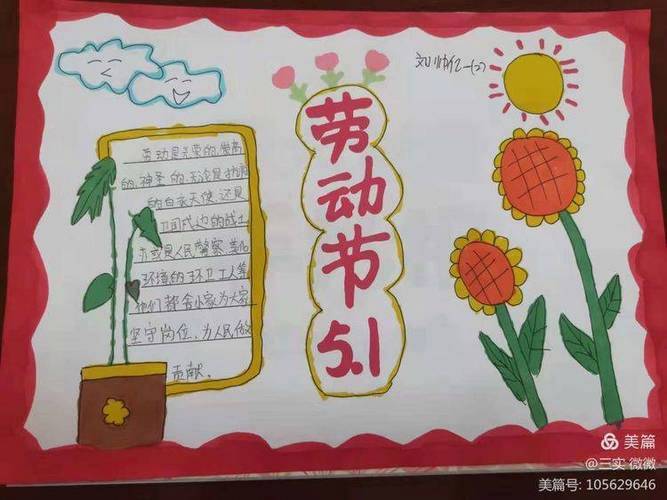 刘帅亿一(2)
劳动节
5.1
劳动是光荣的,崇高
的,神圣的,无论是扶伤
的白衣天使,还是
卫国戍边的战士
亦或是人民警察,美化
环境的环卫工人等
他们都舍小家为大家
坚守岗位,为人民做
贡献。
美篇
@三实 微微
美篇号: 105629646